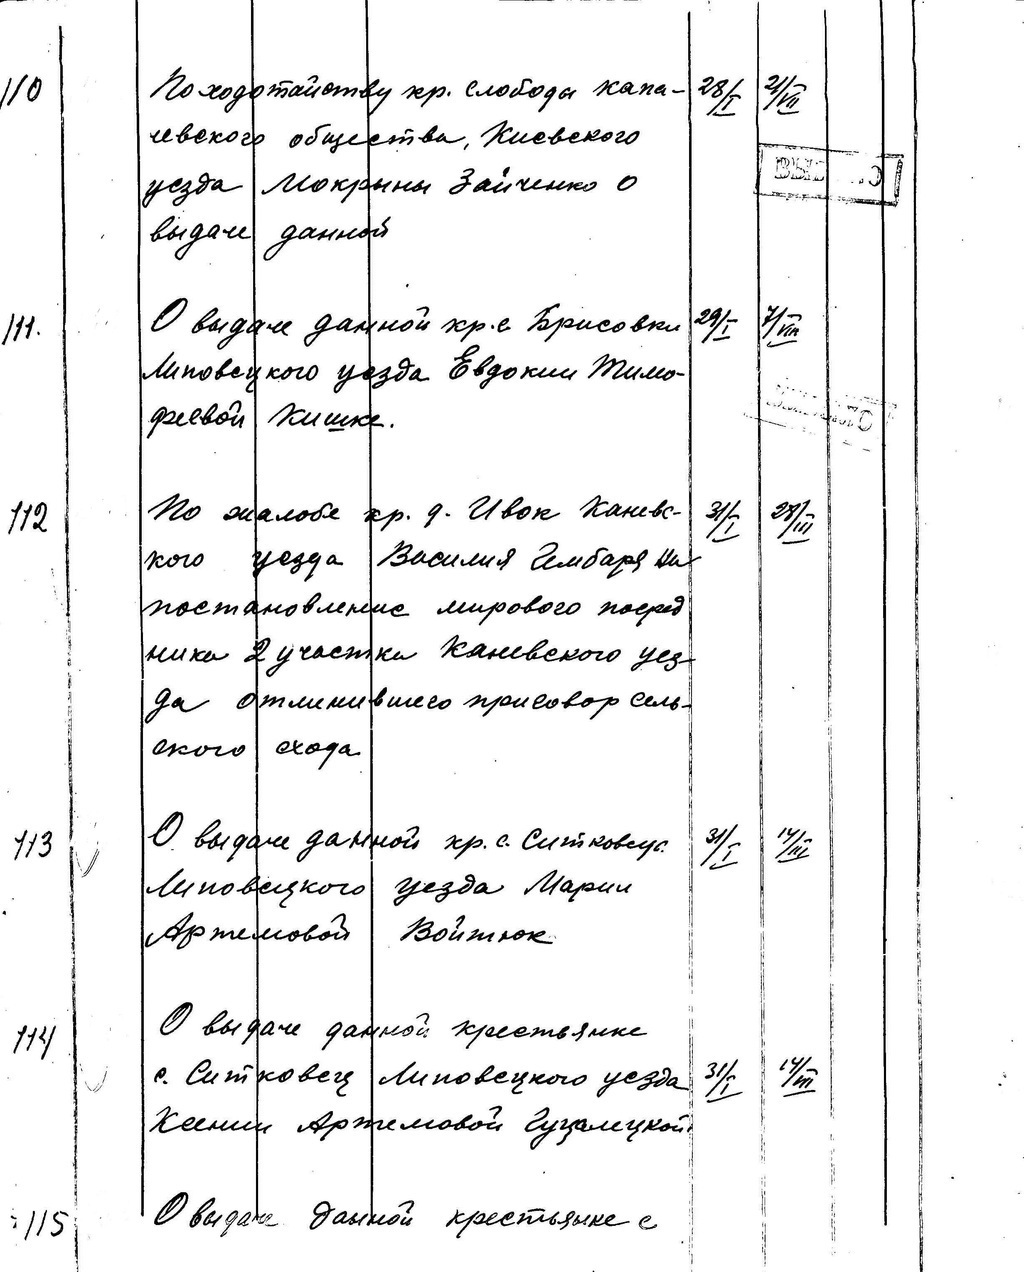 110 По ходотайству кр. слободы Капа- 28/I 21/VII
чевского общества, Киевского
уезда Мокрыны Зайченко о
выдаче данной
111. О выдаче данной кр. с. Брисовки 29/I 7/VIII
Липовецкого уезда Евдокии Тимо-
феевой Кишке.
112 По жалобе кр. д. Ивок Каневс- 31/I 28/III
кого уезда Василия Гембара на
постановление мирового посред
ника 2 участка Каневского уез-
да отменившего приговор сель-
ского схода
113 О выдаче данной кр. с. Ситковец 31/I 14/III
Липовецкого уезда Марии
Артемовой Войтюк
114 О выдаче данной крестьянке
с. Ситковец Липовецкого уезда 31/I 14/III
Ксении Артемовой Гуцалецкой
115 О выдаче данной крестьянке с